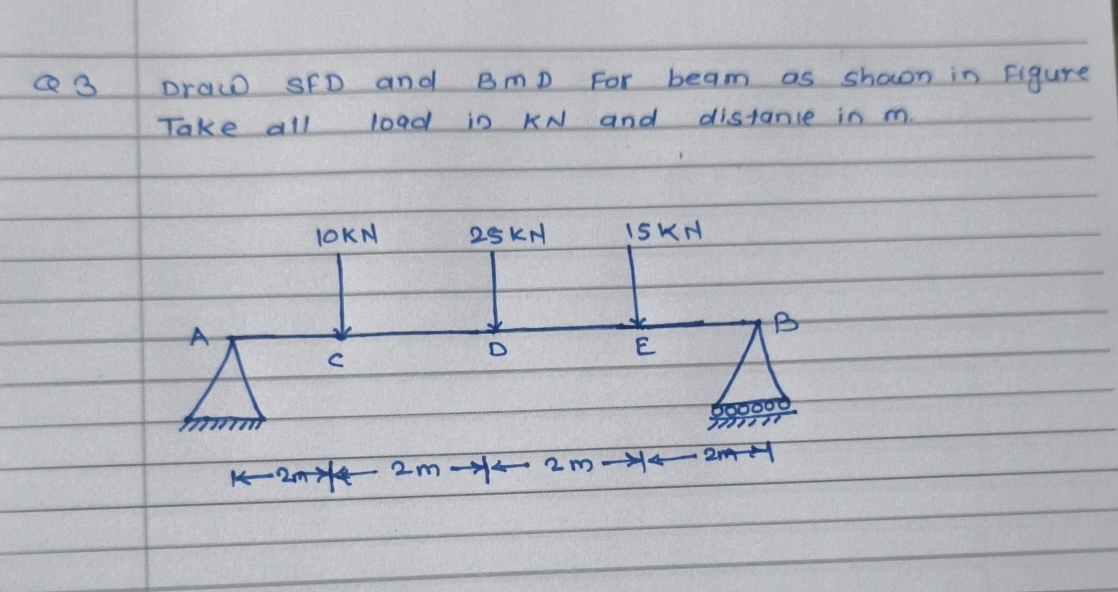 Q 3 Draw SFD and BMD For beam as shown in Figure
Take all load in KN and distance in m.
10KN 25KN 15KN
A B
C D E
2m 2m 2m 2m